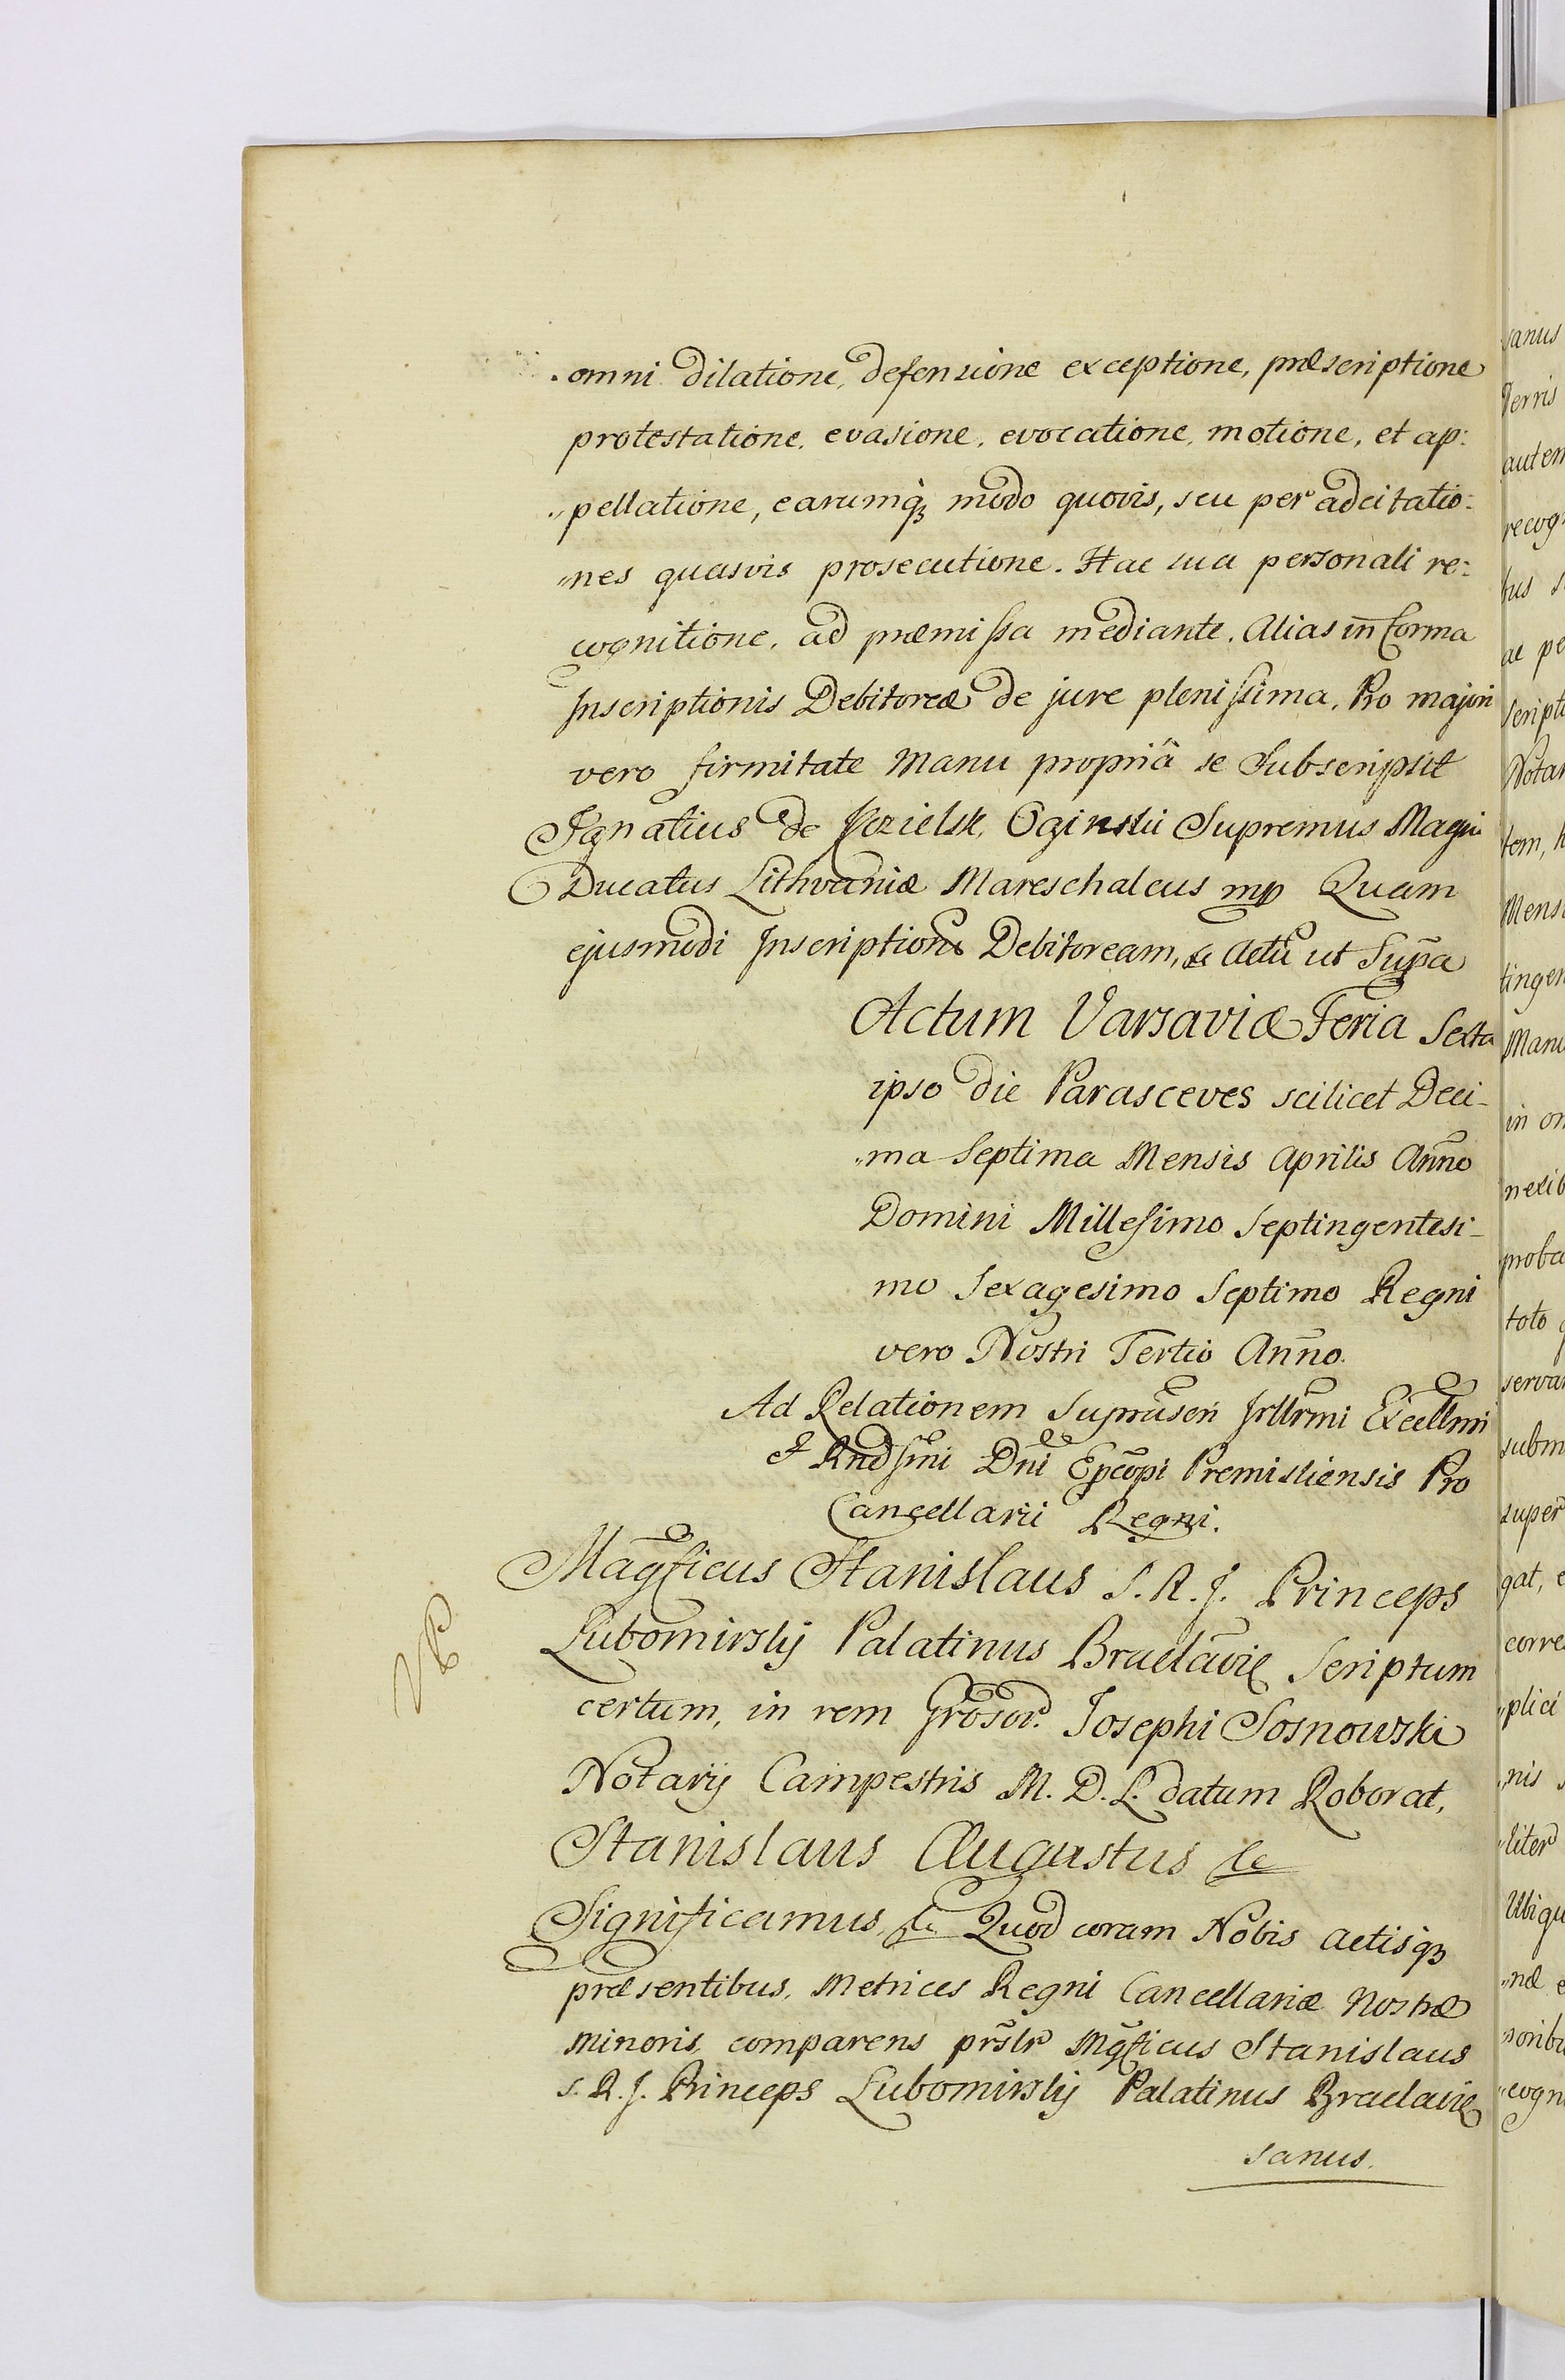 omni dilatione, defensione exceptione, præscriptione
protestatione, evasione, evocatione, motione, et ap:
„pellatione, earumq3 modo quovis, seu per adcitatio:
„nes quasvis prosecutione. Hac sua personali re:
cognitione, ad præmissa mediante. Alias in forma
Inscriptionis Debitoreæ de jure plenissima. Pro majori
vero firmitate Manu propriâ se Subscripsit
Ignatius de Kozielsk Oginskii Supremus Magni
Ducatus Lithvaniæ Mareschalcus mp Quam
ejusmodi Inscriptione Debitoream, &c Actũ ut Sup̃a
Actum Varsaviæ Feria Sexta
ipso die Parasceves scilicet Deci-
„ma Septima Mensis Aprilis Añno
Domini Millesimo Septingentesi-
mo Sexagesimo Septimo Regni
vero Nostri Tertio Anno.
Ad Relationem Illr̃mi Excell̃mi
& Rnd̃ssmi Dñi Ep̃copi Premisliensis Pro
Cancellarii Regni.
Mag̃ficus Stanislaus S. R. J. Princeps
Lubomirskij Palatinus Braclavię Scriptum
certum, in rem Gr̃osor. Josephi Sosnowski
Notarij Campestris M. D. L. datum Roborat.
Stanislaus Augustus &c
Significamus, &c Quod coram Nobis Actisq3
præsentibus, Metrices Regni Cancellariæ Nostræ
Minoris, comparens pr̃slr Mg̃ficus Stanislaus
S. R. J. Princeps Lubomirskij Palatinus Braclavię
sanus.
sanus
Terris
autem
recog
bus s
ac pe
scripti
Notar
tem, h
Mens
tingen
Manu
in om
nexib
proba
toto
servar
subm
super
gat, e
corre
„plici
„nis
„liter
Ubiqu
„næ e
„soribu
„cogni